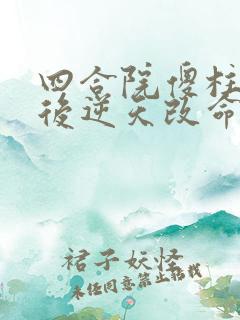 四合院傻柱
後逆天改命
裙子妖怪
未经同意禁止搬载